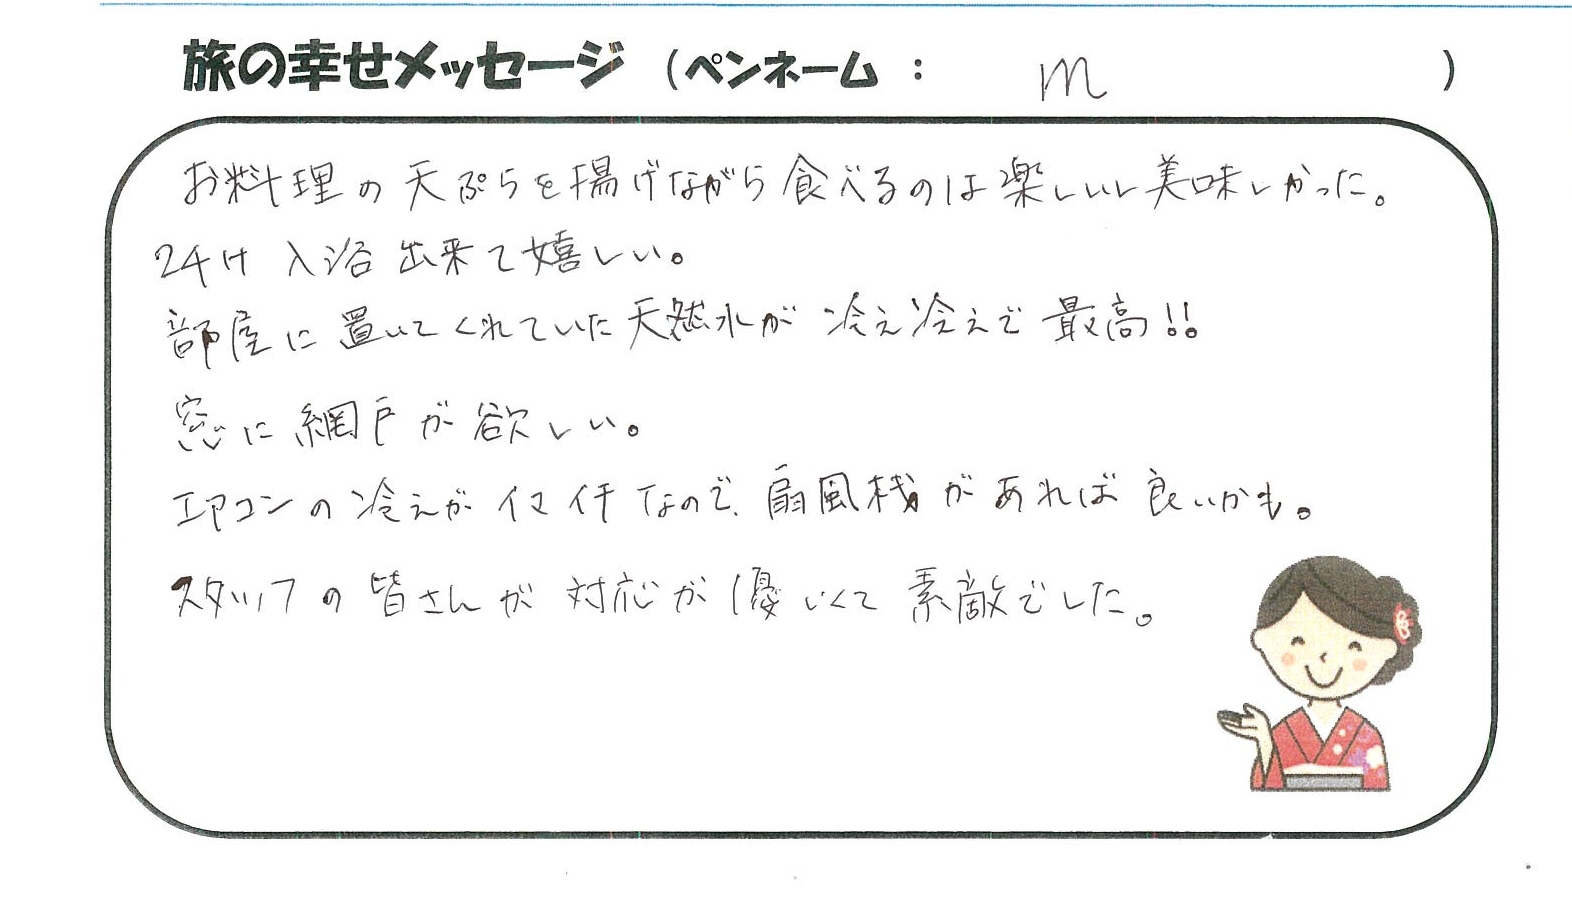 旅の幸せメッセージ（ペンネーム： m ）
お料理の天ぷらを揚げながら食べるのは楽しいし美味しかった。
24h 入浴出来て嬉しい。
部屋に置いてくれていた天然水が冷え冷えで最高!!
窓に網戸が欲しい。
エアコンの冷えがイマイチなので、扇風機があれば良いかも。
スタッフの皆さんが対応が優しくて素敵でした。